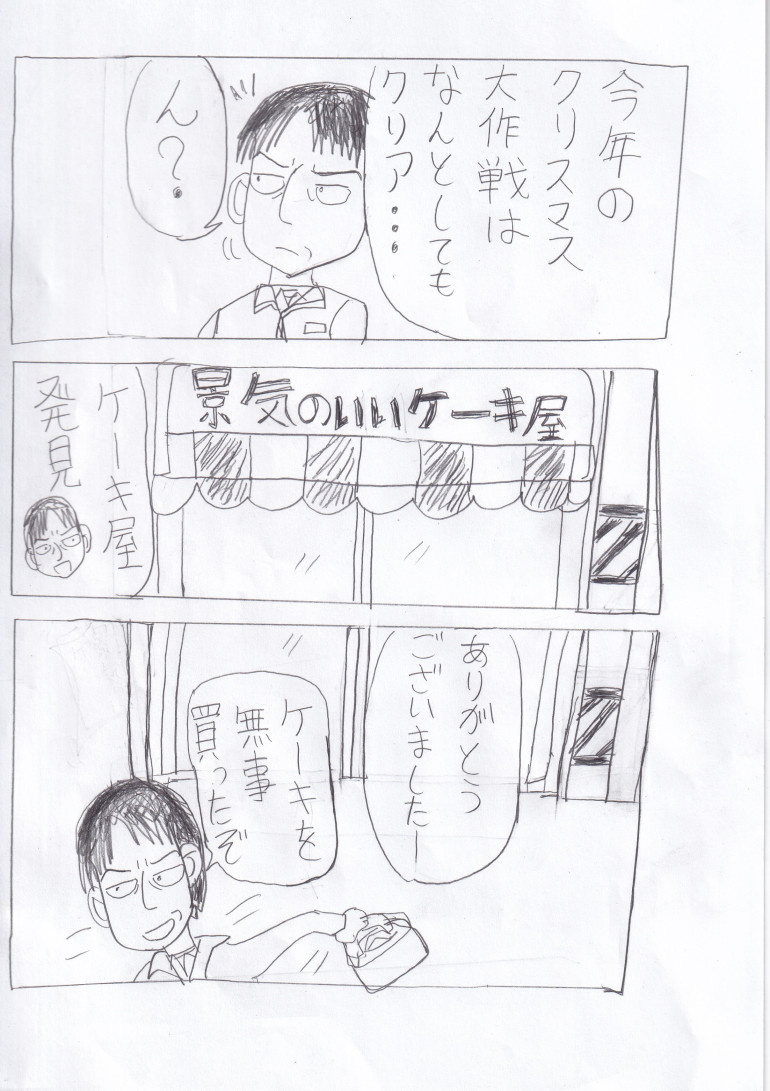 今年の
クリスマス
大作戦は
なんとしても
クリア・・・
ん?
景気のいいケーキ屋
ケーキ屋
発見
ありがとう
ございましたー
ケーキを
無事
買ったぞ